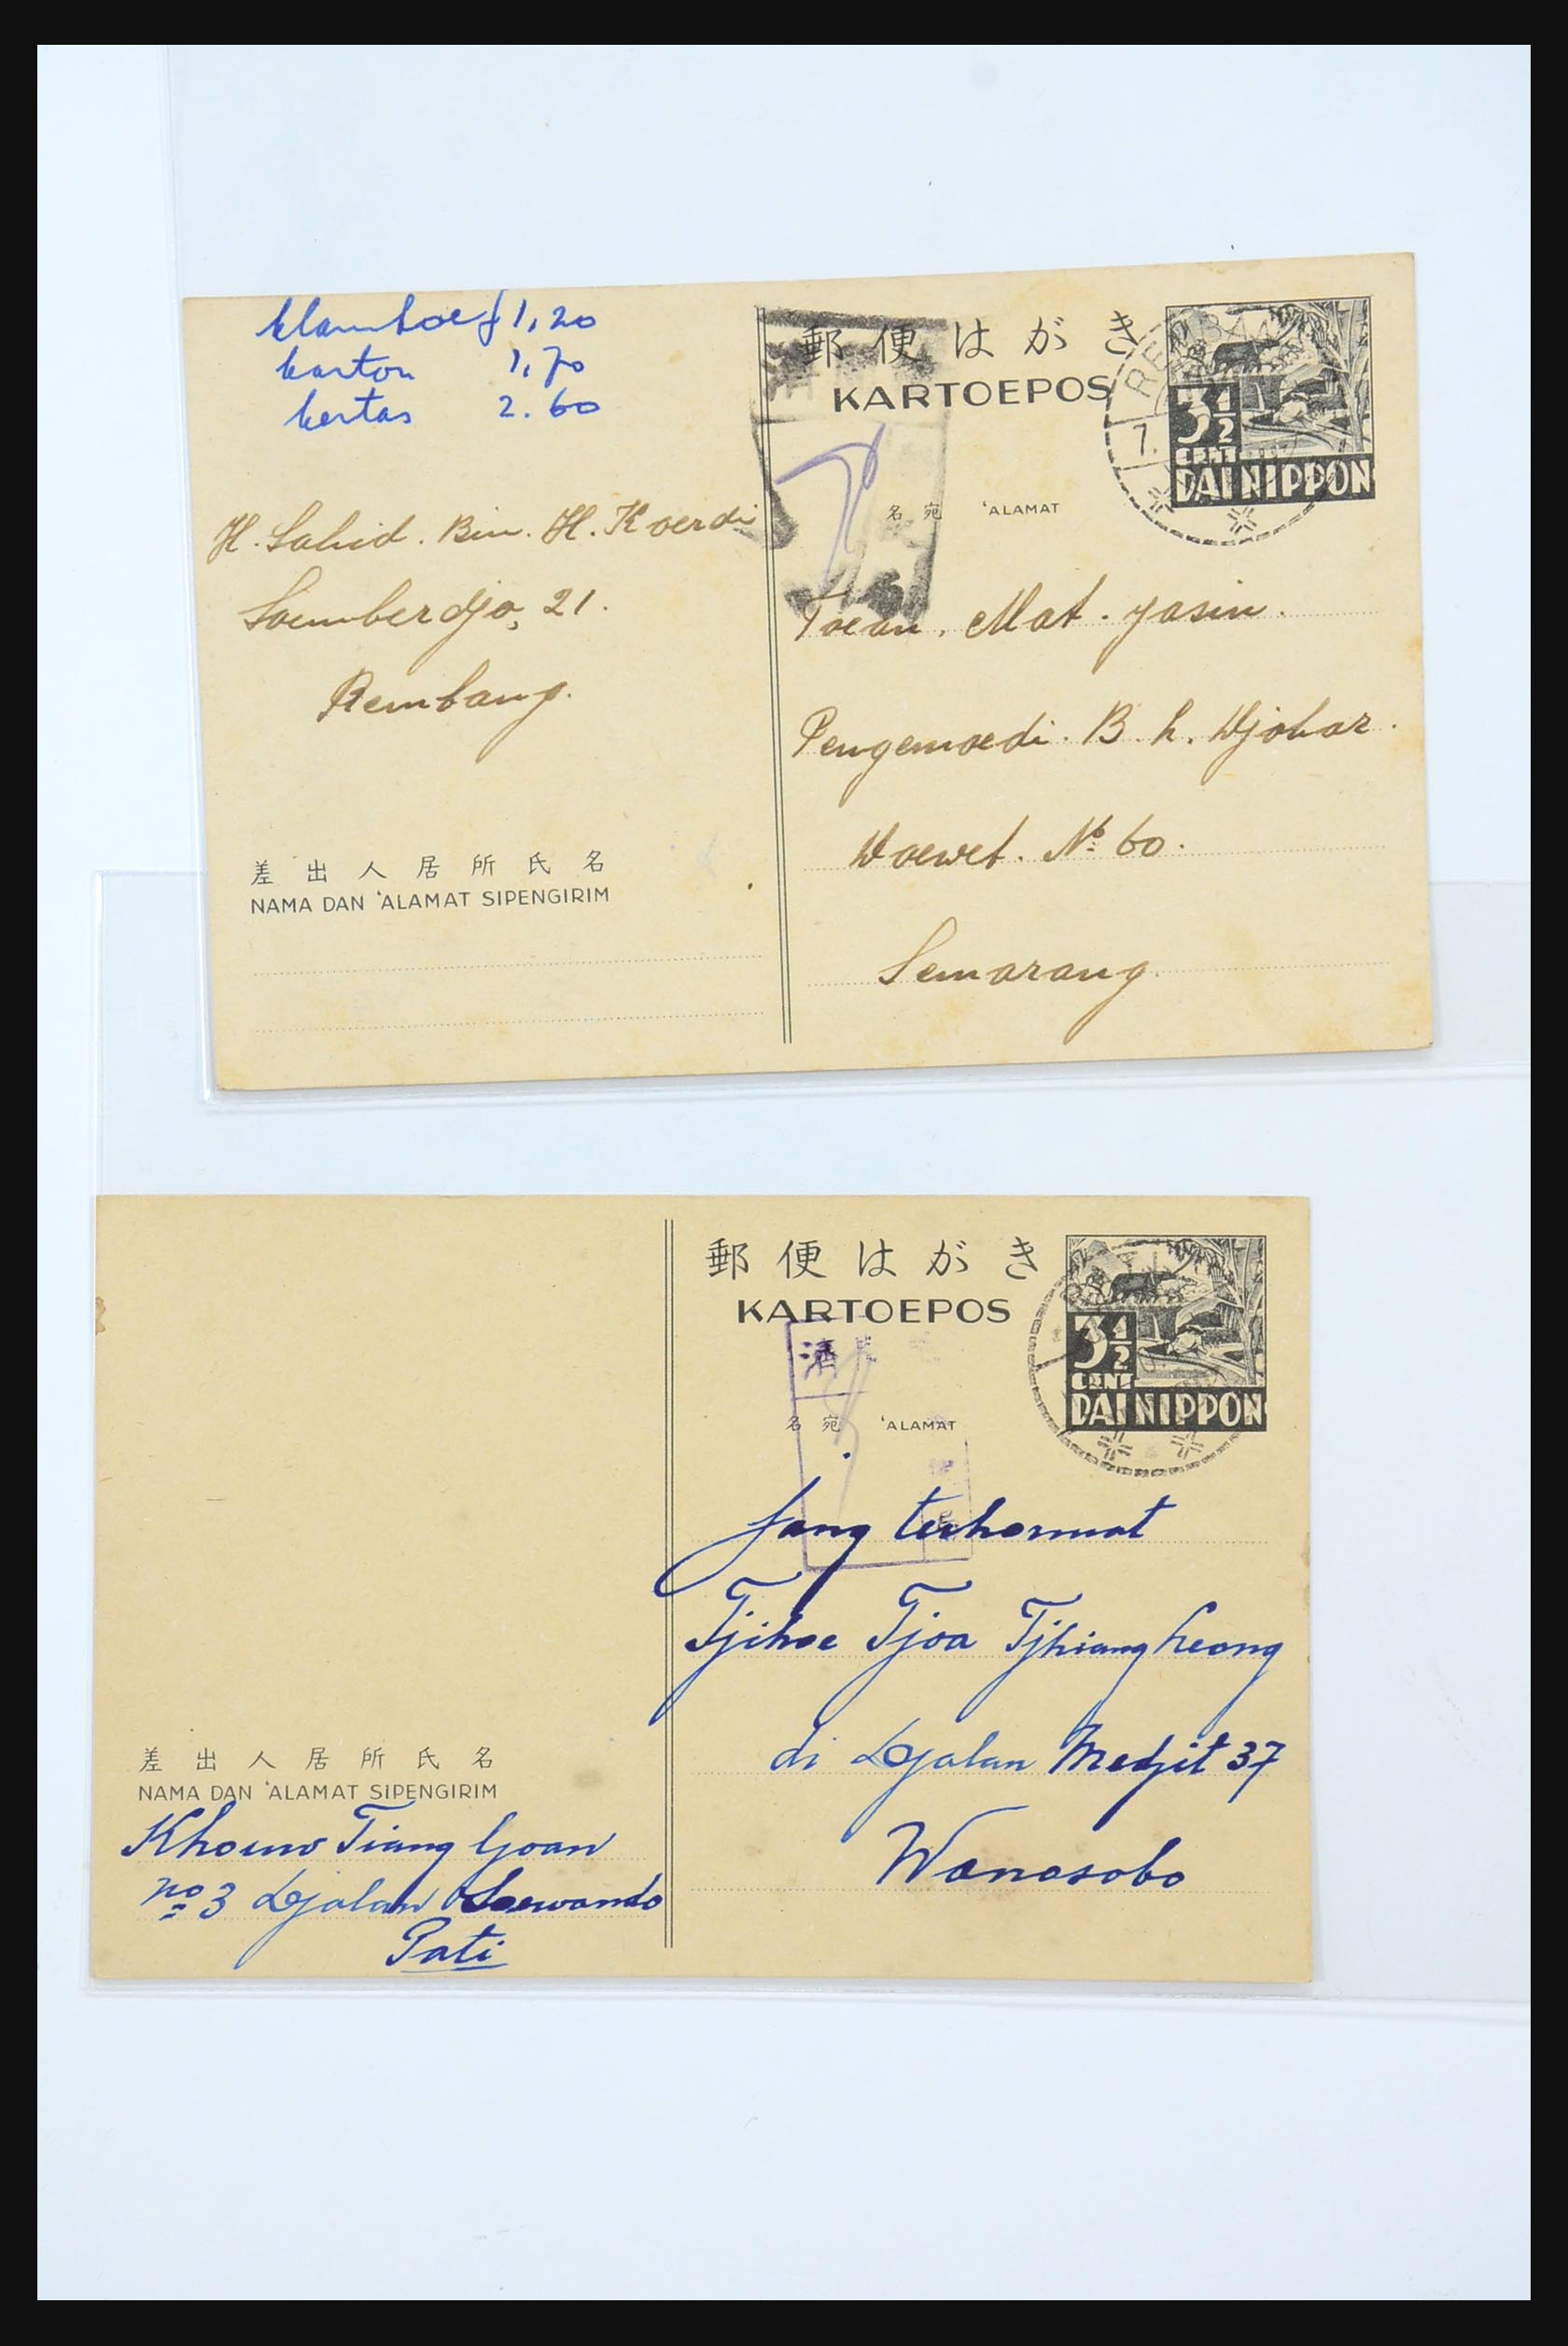 klamboe f 1,20
karton 1,70
kertas 2.60
H. Sahid. Bin. H. Koerdi
Soemberdjo, 21.
Rembang.
差出人居所氏名
NAMA DAN 'ALAMAT SIPENGIRIM
郵便はがき
KARTOEPOS
3½
CENT
DAI NIPPON
7.
名宛 'ALAMAT
Toean. Mat. Yasin.
Pengemoedi. B. h. Djobar.
Woewet. No 60.
Semarang.
郵便はがき
KARTOEPOS
3½
CENT
DAI NIPPON
済
名宛 'ALAMAT
Jang terhormat
Tjihoe Tjoa Tjhiang Leong
di Djalan Medjit 37
Wonosobo
差出人居所氏名
NAMA DAN 'ALAMAT SIPENGIRIM
Khouw Tiang Goan
no 3 Djalan Soewondo
Pati